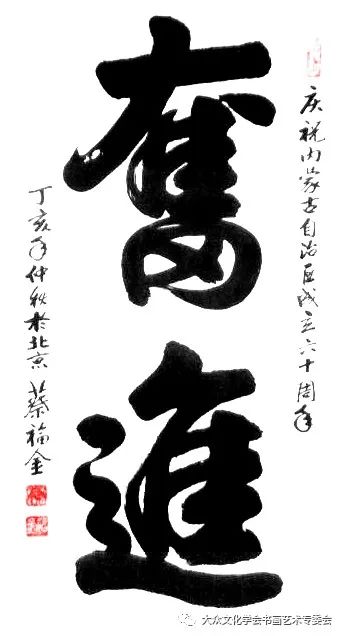 庆祝内蒙古自治区成立六十周年
奮進
丁亥年仲秋於北京 蔡福金
大众文化学会书画艺术专委会